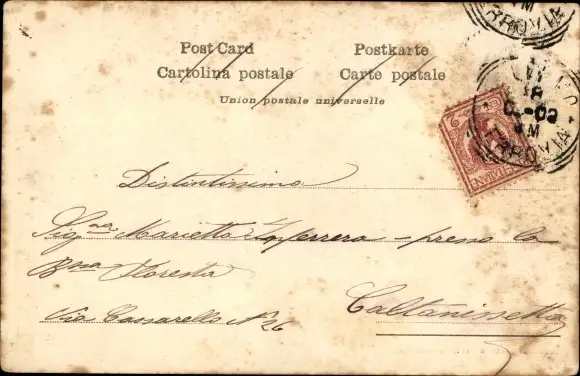 Post Card Postkarte
Cartolina postale Carte postale
Union postale universelle
FERROVIA
Distintissima
Sig.na Marietta - presso la
B.na Floresta
Via N. 26
Caltanissetta